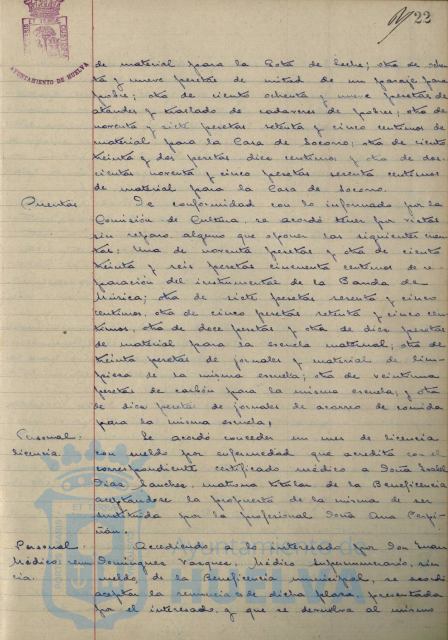 22
AYUNTAMIENTO DE HUELVA
de material para la Gota de leche; otra de ochen
ta y nueve pesetas de mitad de un pasaje para
pobre; otra de ciento ochenta y nueve pesetas de
ataudes y traslado de cadaveres de pobres; otra de
noventa y siete pesetas setenta y cinco centimos de
material para la Casa de Socorro; otra de ciento
treinta y dos pesetas diez centimos y otra de dos
cientas noventa y cinco pesetas sesenta centimos
de material para la Casa de Socorro.
Cuentas
De conformidad con lo informado por la
Comisión de Cultura, se acordó tener por vistas
sin reparo alguno que oponer las siguientes cuen
tas: Una de noventa pesetas y otra de ciento
treinta y seis pesetas cincuenta centimos de re
paración del instrumental de la Banda de
Música; otra de siete pesetas sesenta y cinco
centimos, otra de cinco pesetas setenta y cinco cen
timos, otra de doce pesetas y otra de diez pesetas
de material para la escuela maternal; otra de
treinta pesetas de jornales y material de lim-
pieza de la misma escuela; otra de veintiuna
pesetas de carbón para la misma escuela; y otra
de diez pesetas de jornales de acarreo de comida
para la misma escuela.
Personal:
licencia.
Se acordó conceder un mes de licencia
con sueldo por enfermedad que acredita con el
correspondiente certificado médico a Doña Isabel
Diaz Sanchez, matrona titular de la Beneficencia
aceptandose la propuesta de la misma de ser
sustituida por la profesional Doña Ana Carpi-
ñán.
Personal
Médico: renun
cia.
Accediendo a lo interesado por Don Juan
Dominguez Vazquez, Médico supernumerario, sin
sueldo, de la Beneficencia municipal, se acordó
aceptar la renuncia de dicha plaza presentada
por el interesado, y que se devuelva al mismo
Ayuntamiento de
HUELVA